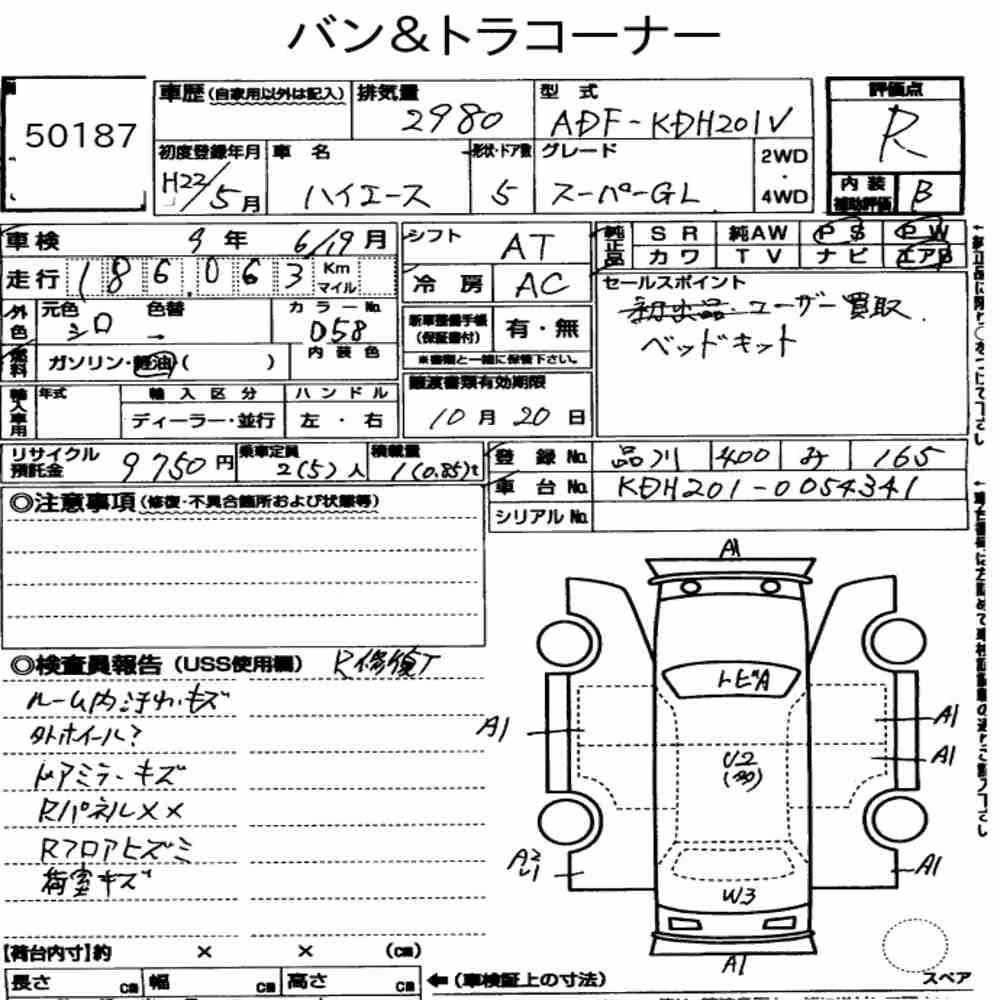 バン&トラコーナー
50187
車歴 (自家用以外は記入)
排気量 2980
型式 ADF-KDH201V
評価点 R
初度登録年月 H22/5月
車名 ハイエース
形状・ドア数 5
グレード スーパーGL
2WD・4WD
内装補助評価 B
車検 9年 6/19月
シフト AT
純正品 SR 純AW PS PW
カワ TV ナビ エアB
走行 186,063 Km マイル
冷房 AC
セールスポイント
初出品・ユーザー買取
ベッドキット
外色 元色 シロ 色替 →
カラーNo. 058
内装色
新車整備手帳(保証書付) 有・無
※書類と一緒に保管下さい。
燃料 ガソリン・軽油・( )
譲渡書類有効期限
10月20日
輸入車用 年式 輸入区分 ディーラー・並行 ハンドル 左・右
リサイクル預託金 9750円
乗車定員 2(5)人
積載量 1(0.85)t
登録No. 品川 400 み 165
車台No. KDH201-0054341
シリアルNo.
◎注意事項 (修復・不具合箇所および状態等)
◎検査員報告 (USS使用欄) R修復て
ルーム内汚れ・キズ
外ホイール?
ドアミラーキズ
Rパネル××
Rフロアヒズミ
荷室キズ
A1
トビA
A1
A1
A1
U2
(多)
A2
A1
W3
A1
スペア
【荷台内寸】約 × × (cm)
長さ cm 幅 cm 高さ cm
←(車検証上の寸法)